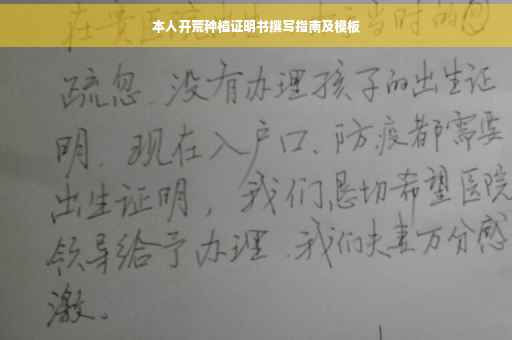 本人开荒种植证明书撰写指南及模板
当时的
疏忽、没有办理孩子的出生证
明、现在入户口、防疫都需要
出生证明，我们恳切希望医院
领导给予办理、我们夫妻万分感
激。